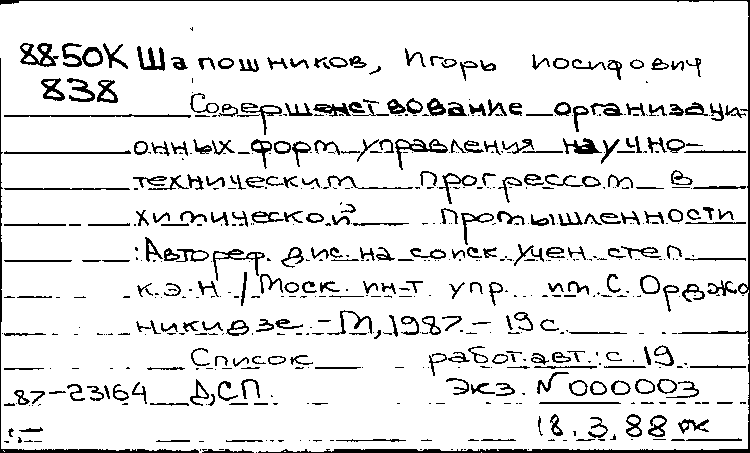 88-50К Шапошников, Игорь Иосифович
838
Совершенствование организаци-
онных форм управления научно-
техническим прогрессом в
химической промышленности
: Автореф. дис. на соиск. учен. степ.
к.э.н. / Моск. ин-т упр. им. С. Орджо
никидзе. - М, 1987. - 19 с.
Список работ. авт.: с. 19.
87-23164 ДСП. Экз. N 000003
18.3.88 ок